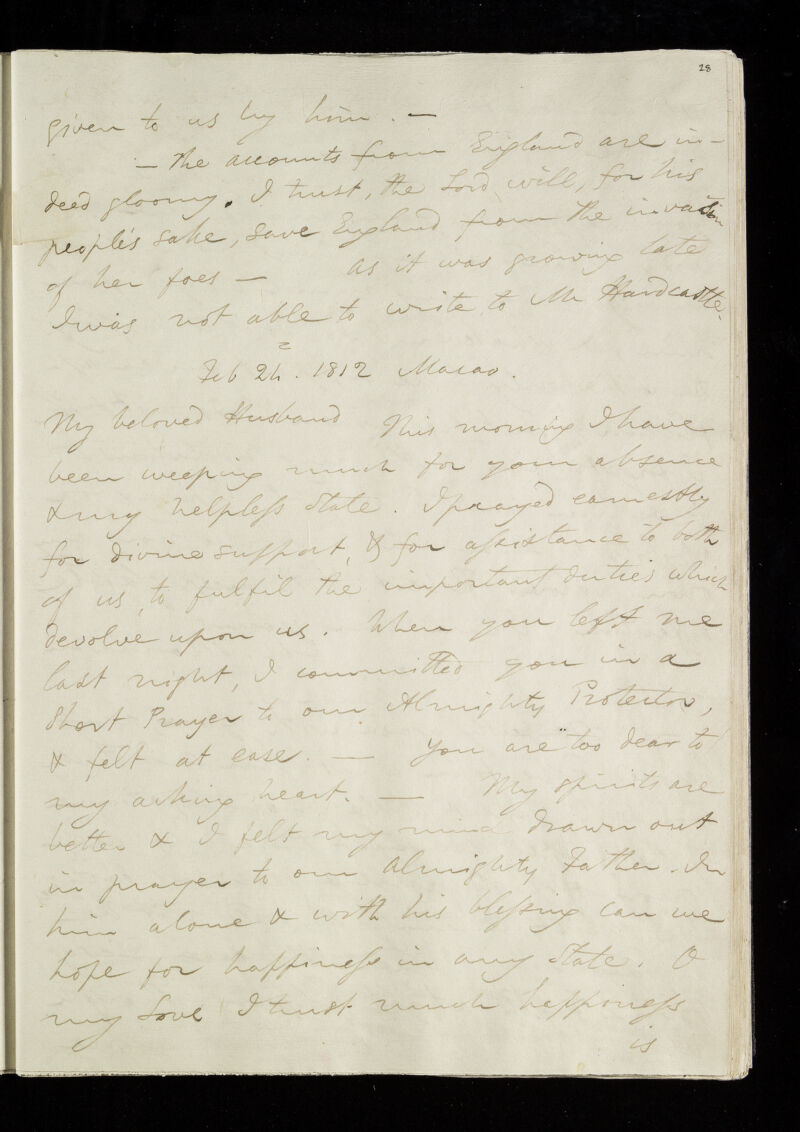 28
given to us by him. —
— The accounts from England are in-
deed gloomy. I trust, the Lord will, for his
people's sake, save England from the invasion
of her foes — As it was growing late
I was not able to write to Mr Hardcastle.
Feb 24. 1812 Macao.
My beloved Husband This morning I have
been weeping much for your absence
& my helpless state. I prayed earnestly
for divine support, & for assistance to both
of us, to fulfil the important duties which
devolve upon us. When you left me
last night, I committed you in a
short Prayer to our Almighty Protector,
& felt at ease. — You are "too dear to
my aking heart. — My spirits are
better & I felt my mind drawn out
in prayer to our Almighty Father. In
him alone & with his blessing can we
hope for happiness in any state. O
my Love I trust much happiness
is